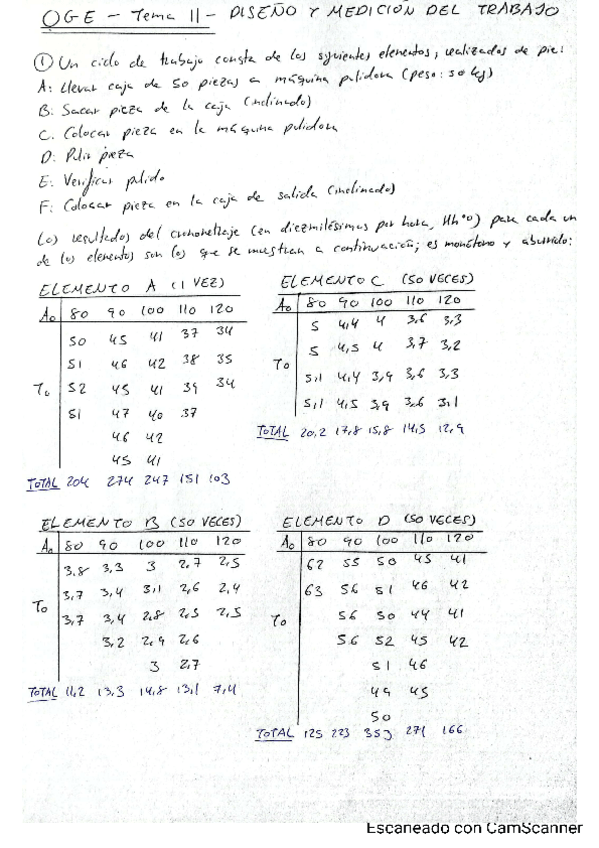 OGE - Tema 11 - DISEÑO Y MEDICIÓN DEL TRABAJO
① Un ciclo de trabajo consta de los siguientes elementos, realizados de pie:
A: Llevar caja de 50 piezas a máquina pulidora (peso: 30 kg)
B: Sacar pieza de la caja (inclinado)
C. Colocar pieza en la máquina pulidora
D: Pulir pieza
E: Verificar pulido
F: Colocar pieza en la caja de salida (inclinado)
Los resultados del cronometraje (en diezmilésimas por hora, HhºO) para cada un
de los elementos son los que se muestran a continuación; es monótono y aburrido:
ELEMENTO A (1 VEZ)
Ao 80 90 100 110 120
50 45 41 37 34
51 46 42 38 35
To 52 45 41 39 34
51 47 40 37
46 42
45 41
TOTAL 204 274 247 151 103
ELEMENTO C (50 VECES)
Ao 80 90 100 110 120
5 4,4 4 3,6 3,3
5 4,5 4 3,7 3,2
To
5,1 4,4 3,9 3,6 3,3
5,1 4,5 3,9 3,6 3,1
TOTAL 20,2 17,8 15,8 14,5 12,9
ELEMENTO B (50 VECES)
Ao 80 90 100 110 120
3,8 3,3 3 2,7 2,5
3,7 3,4 3,1 2,6 2,4
To 3,7 3,4 2,8 2,5 2,5
3,2 2,9 2,6
3 2,7
TOTAL 11,2 13,3 14,8 13,1 7,4
ELEMENTO D (50 VECES)
Ao 80 90 100 110 120
62 55 50 45 41
63 56 51 46 42
To 56 50 44 41
56 52 45 42
51 46
49 45
50
TOTAL 125 223 353 271 166
Escaneado con CamScanner